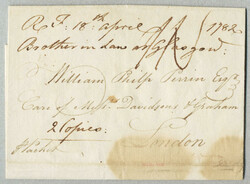 Rd. 18th April 1782
Brother in Law at Glasgow.
William Philp Perrin Esqr
Care of Messrs Davidsons & Graham
2 Copies.
London